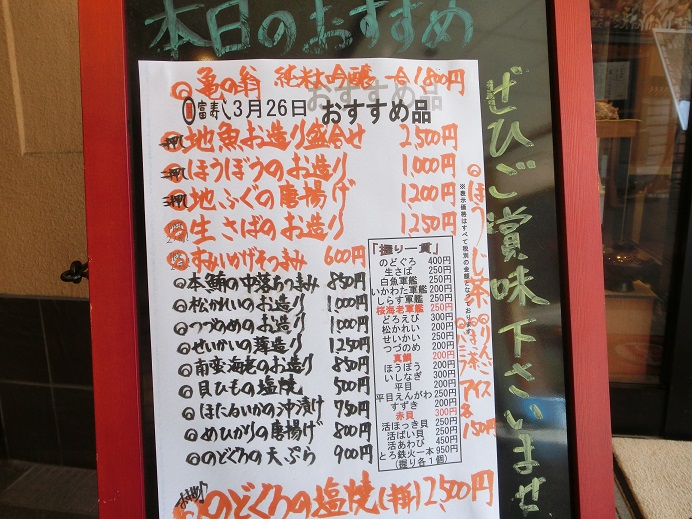 本日のおすすめ
亀の翁 純米大吟醸 一合1,800円
富寿し3月26日 おすすめ品
押し 地魚お造り盛合せ 2,500円
ほうぼうのお造り 1,000円
押し 地ふぐの唐揚げ 1,200円
生さばのお造り 1,250円
すみいかげそつまみ 600円
本鮪の中落ちつまみ 850円
松かれいのお造り 1,000円
つづのめのお造り 1,000円
せいかいの薄造り 1,250円
南蛮海老のお造り 850円
貝ひもの塩焼 500円
ほたるいかの沖漬け 750円
めひかりの唐揚げ 800円
のどぐろの天ぷら 900円
のどぐろの塩焼(半身)2,500円
「握り一貫」
のどぐろ 400円
生さば 250円
白魚軍艦 250円
いかわた軍艦 200円
しらす軍艦 250円
桜海老軍艦 250円
どろえび 300円
松かれい 200円
せいかい 250円
つづのめ 200円
真鯛 200円
ほうぼう 200円
いしなぎ 300円
平目 200円
平目えんがわ 250円
すずき 200円
赤貝 300円
活ほっき貝 250円
活ばい貝 250円
活あわび 450円
とろ鉄火一本 950円
(握り各1個)
※表示価格はすべて税別の金額となっております
ほうじ茶
りんご
アイス
各150円
ぜひご賞味下さいませ